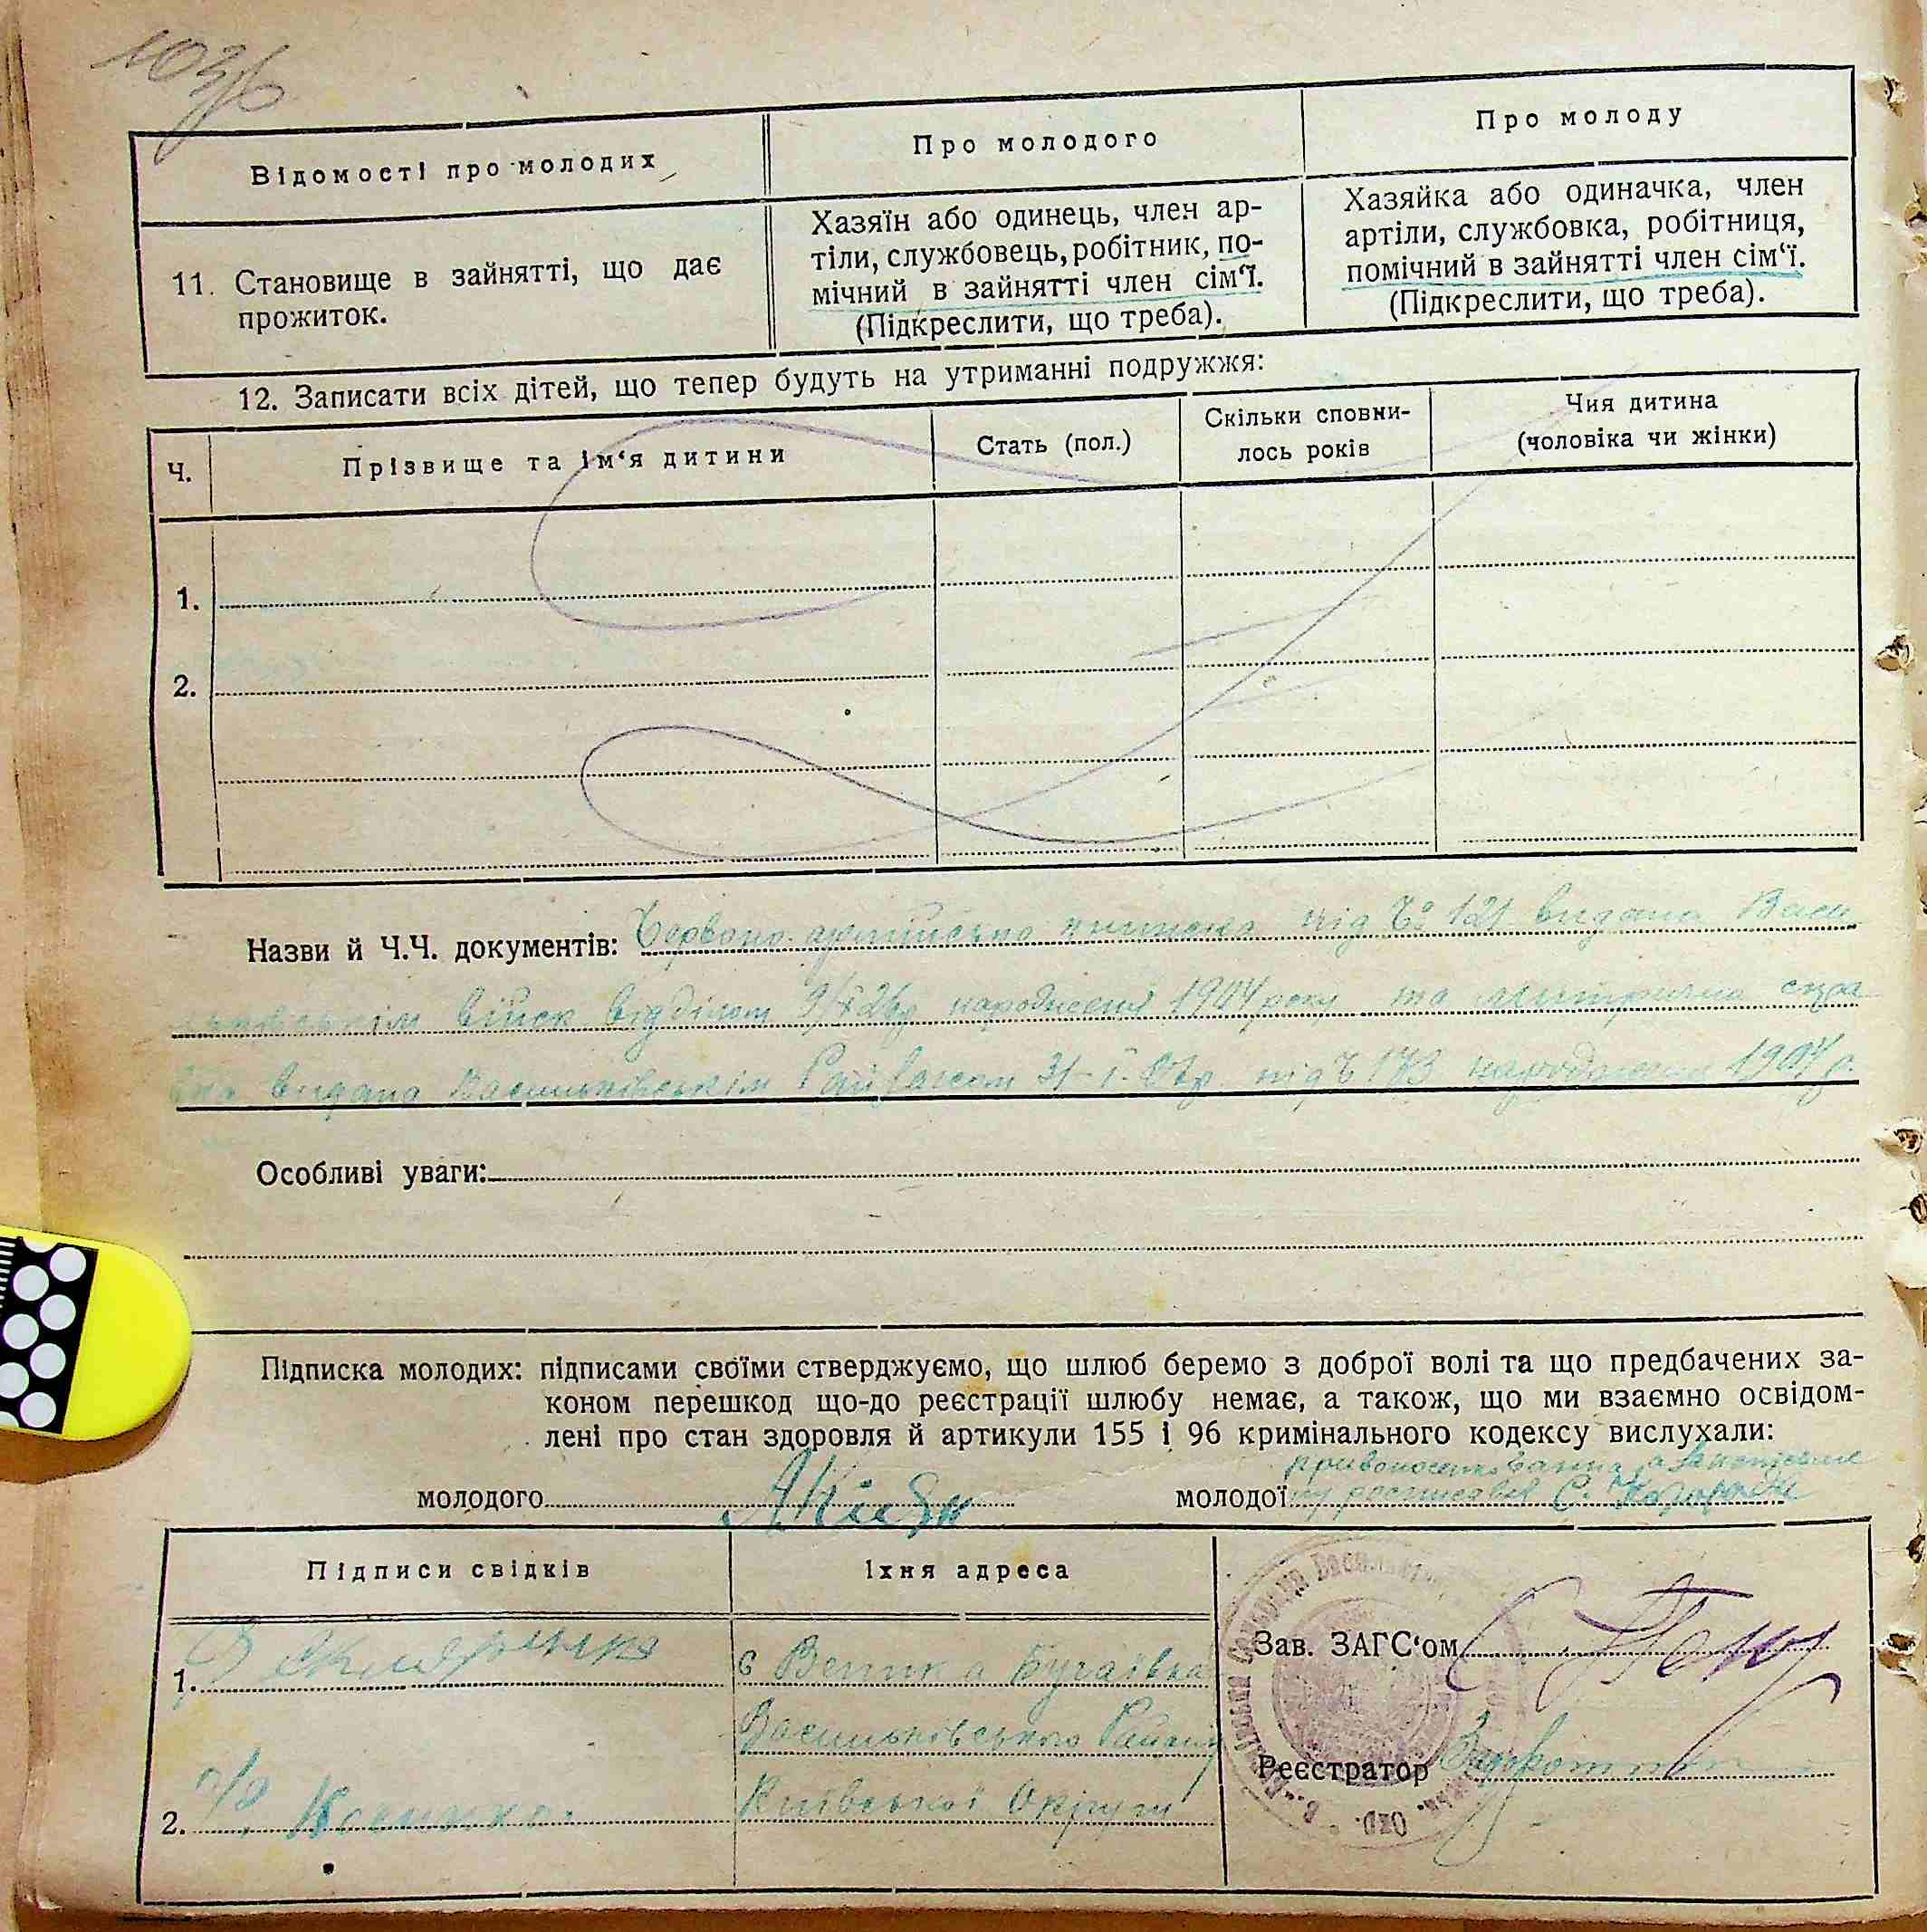 103б
Відомості про молодих
Про молодого
Про молоду
11. Становище в зайнятті, що дає
прожиток.
Хазяїн або одинець, член ар-
тіли, службовець, робітник, по-
мічний в зайнятті член сім‘ї.
(Підкреслити, що треба).
Хазяйка або одиначка, член
артіли, службовка, робітниця,
помічний в зайнятті член сім‘ї.
(Підкреслити, що треба).
12. Записати всіх дітей, що тепер будуть на утриманні подружжя:
Ч.
Прізвище та ім‘я дитини
Стать (пол.)
Скільки сповни-
лось років
Чия дитина
(чоловіка чи жінки)
1.
2.
Назви й Ч.Ч. документів: Червоно армійська книжка під Ч° 121 видана Васи
льківським війск відділом народження 1904 року та метрична спра
вка видана Васильківським Райзагсом під Ч 173 народження 1904 р.
Особливі уваги:
Підписка молодих: підписами своїми стверджуємо, що шлюб беремо з доброї волі та що предбачених за-
коном перешкод що-до реєстрації шлюбу немає, а також, що ми взаємно освідом-
лені про стан здоровля й артикули 155 і 96 кримінального кодексу вислухали:
молодого
молодої
Підписи свідків
Їхня адреса
1.
с Велика Бугаївка
Васильківського Району
2.
Київської Округи
Зав. ЗАГС‘ом
Реєстратор